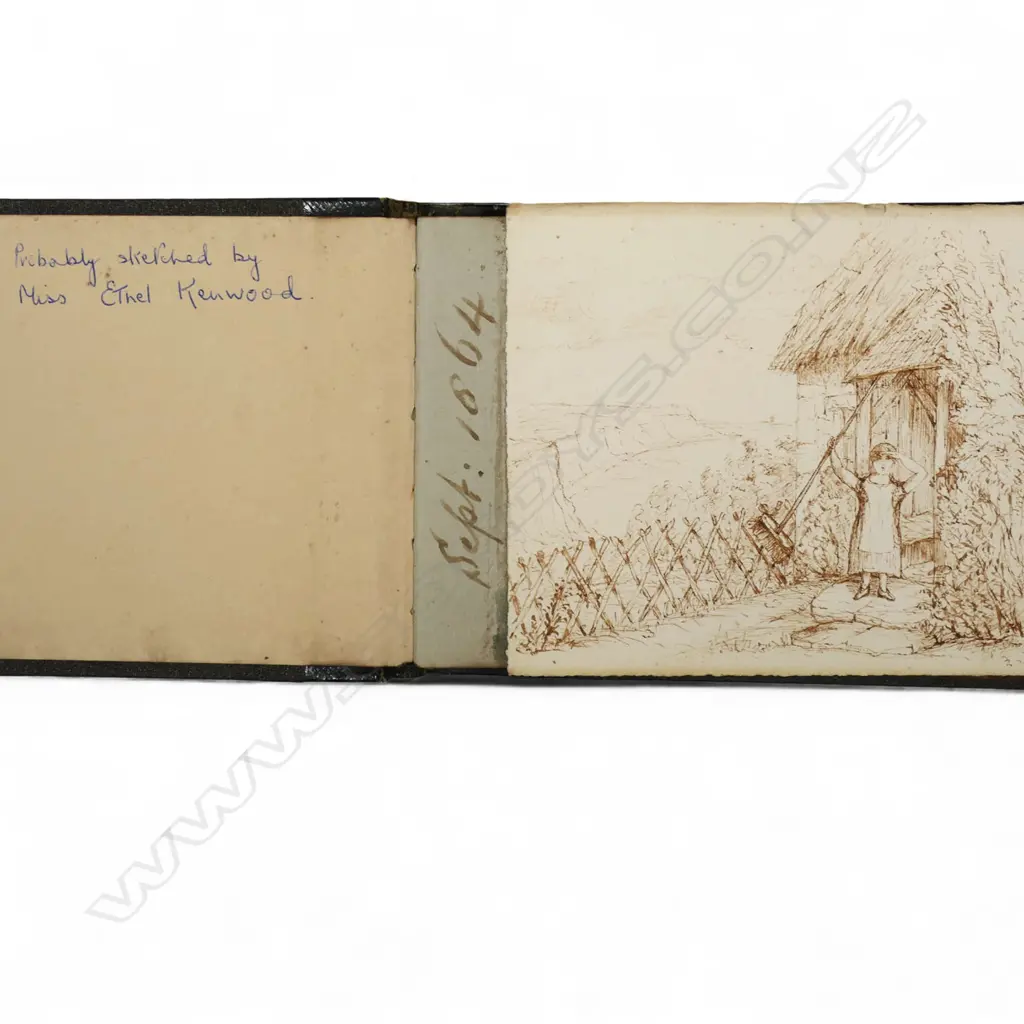 Probably sketched by
Miss Ethel Kenwood.
Sept: 1864